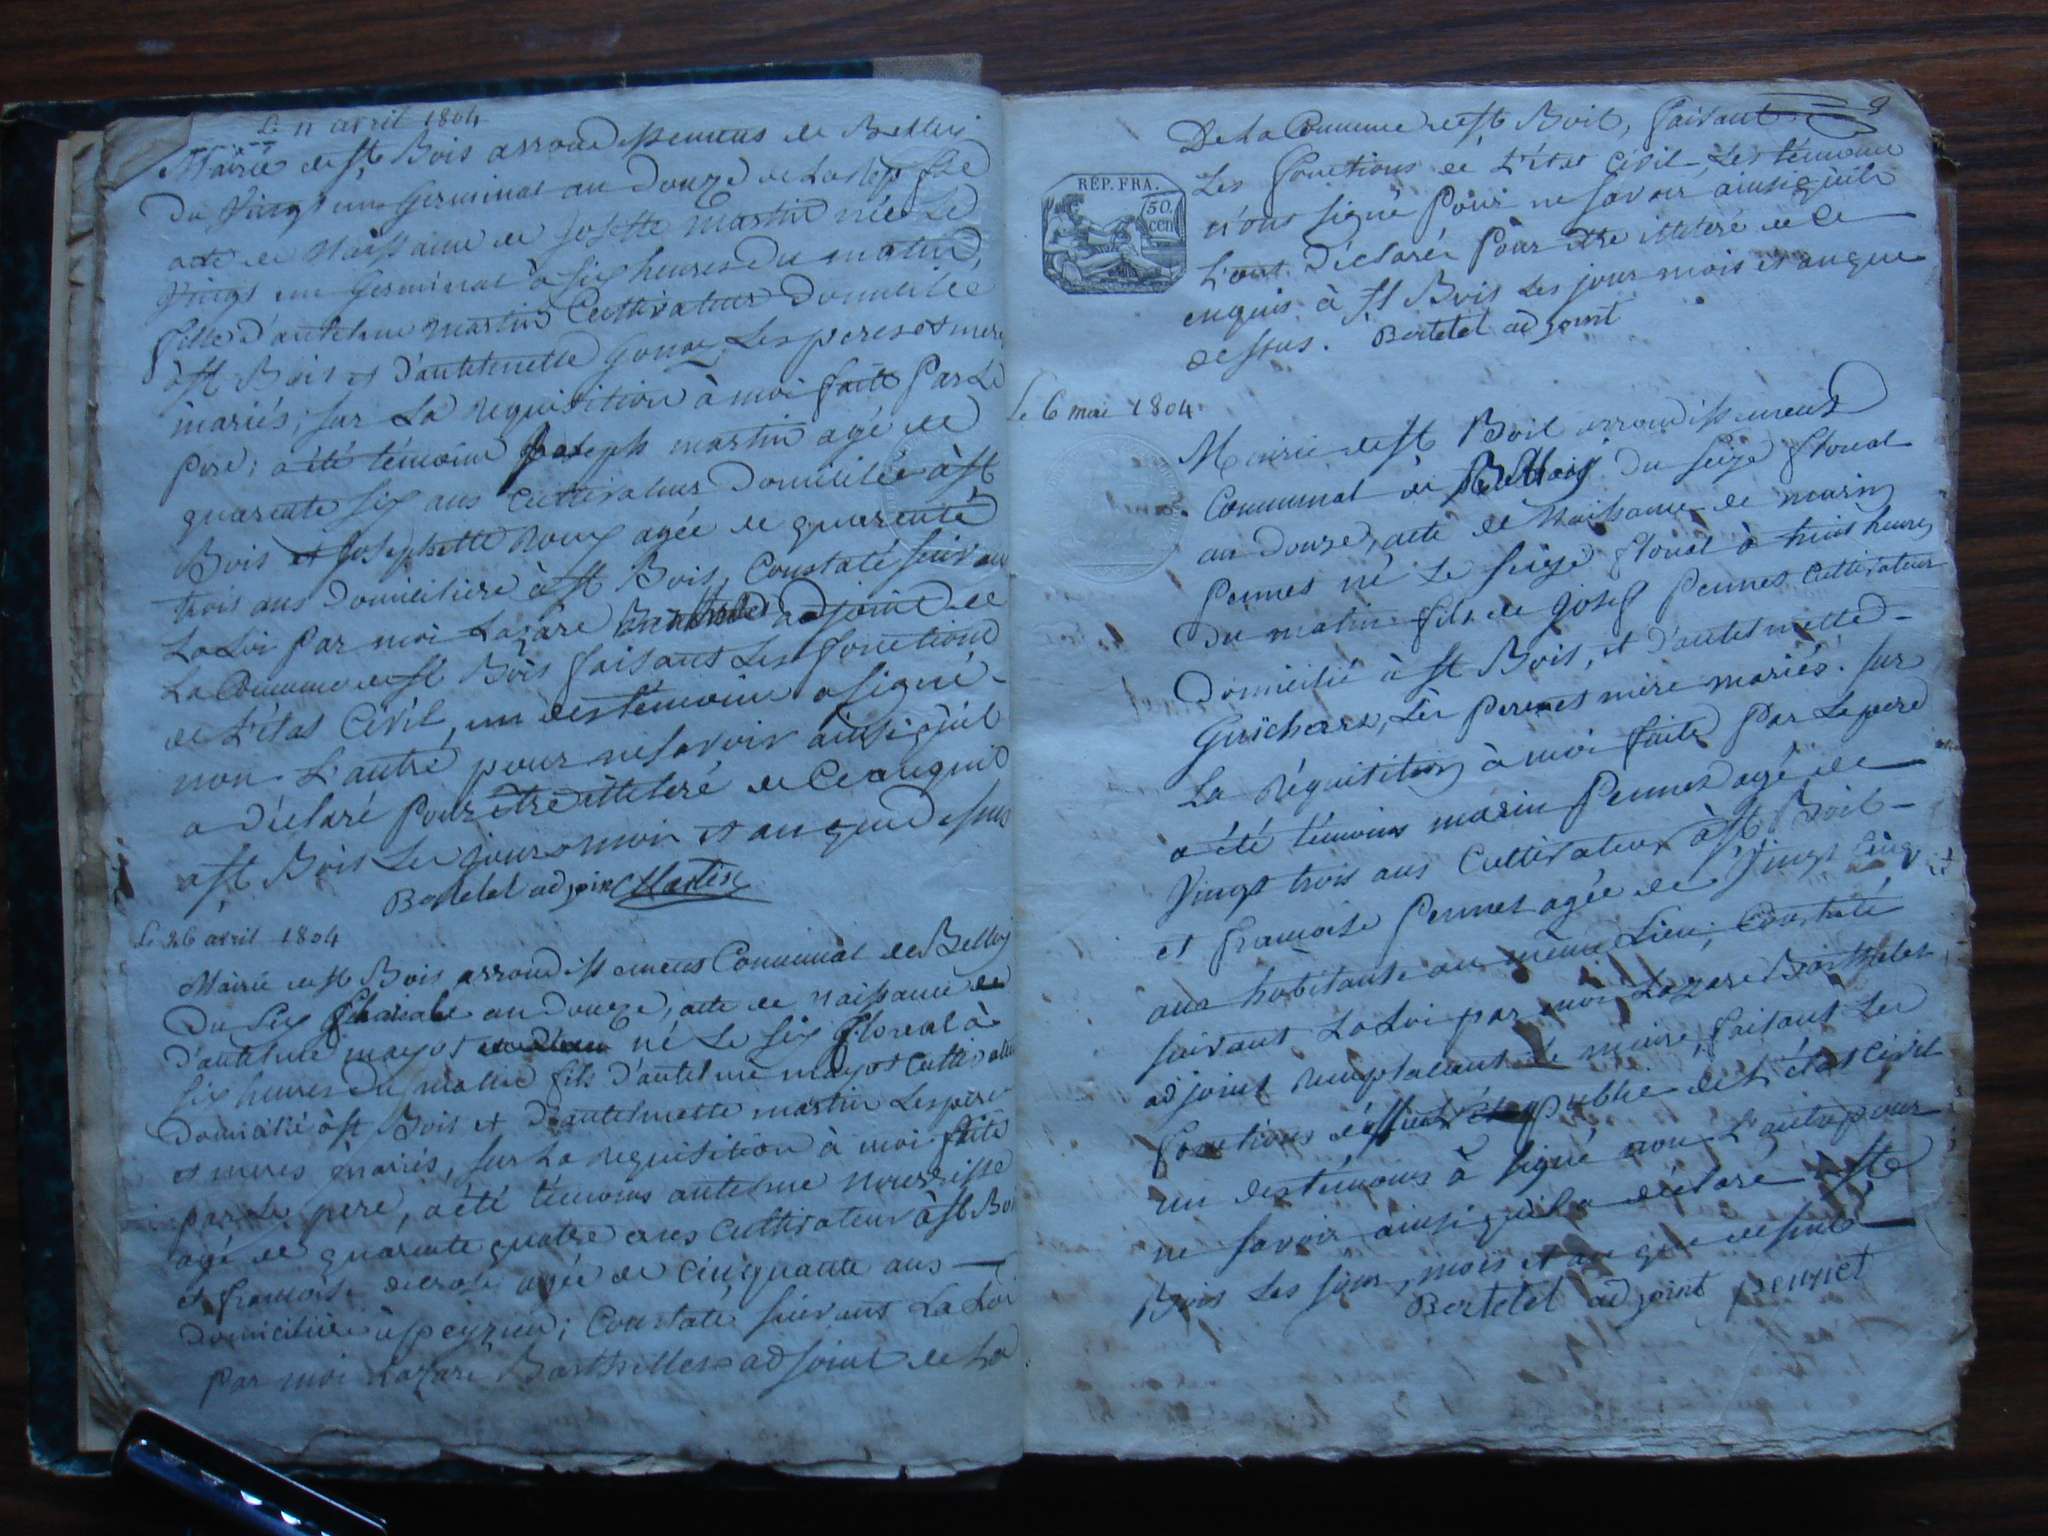 Le 11 avril 1804
Mairie de st Bois arrondissement de Belley
Du Vingt un Germinal an Douze de La Rep fse
acte de Naissance de Josette Martin née Le
Vingt un Germinal à six heures du matin,
fille d'antelme martin Cultivateur Domicilié
à st Bois et d'antelmette Les peres et mere
mariés, sur La requisition à moi faite Par Le
pere; a été témoin Joseph martin agé de
quarente six ans Cultivateur Domicilié à st
Bois et Josephette Roux agée de quarente
trois ans Domiciliere à st Bois, Constaté suivant
La Loi par moi Lazare adjoint de
La Commune de st Bois faisant Les fonctions
de L'état Civil, un des témoins a signé
non L'autre pour ne savoir ainsi qu'il
a déclaré pour être de Ce enquis
a st Bois Les jour mois et an que Dessus
Bertelet adjoint Martin
Le 26 avril 1804
Mairie de st Bois arrondissement Communal de Belley
Du six an Douze, acte de naissance de
d'antelme mayot né Le six floreal à
six heures du matin fils d'antelme mayot Cultivateur
domicilié à st Bois et d'antelmette martin Les pere
et meres mariés, sur La requisition à moi faite
par Le pere, a été témoins antelme
agé de quarente quatre ans Cultivateur à st Bois
et francoise agée de Cinquante ans
domiciliere à peyzieu; Constaté suivant La Loi
par moi Lazare Barthellet adjoint de La
9
De La Commune de st Bois, faisant
Les fonctions de L'état Civil, Les témoins
n'ont signé Pour ne savoir ainsi qu'ils
L'ont Déclarés Pour être de Ce
enquis à st Bois Les jour mois et an que
dessus. Bertelet adjoint
REP. FRA.
50
cen
Le 6 mai 1804
Mairie de st Bois arrondissement
Communal de Belley Du seize floreal
an Douze, acte de Naissance de marin
Pennet né Le seize floreal à huit heures
Du matin fils de Josef Pennet Cultivateur
Domicilié à st Bois, et d'antelmette
Guicherd, Les Peres et mere mariés. sur
La Réquisition à moi faite Par Le pere
a été témoins marin Pennet agé de
Vingt trois ans Cultivateur à st Bois
et francoise Pennet agée de Vingt Cinq
ans habitante au même Lieu, Constaté
suivant La Loi par moi Lazare Barthelet
adjoint remplacant Le maire, faisant Les
fonctions public de L'état Civil
un des témoins à signé non L'autre pour
ne savoir ainsi qu'il a déclaré à st
Bois Les jour, mois et an que dessus
Bertelet adjoint pennet